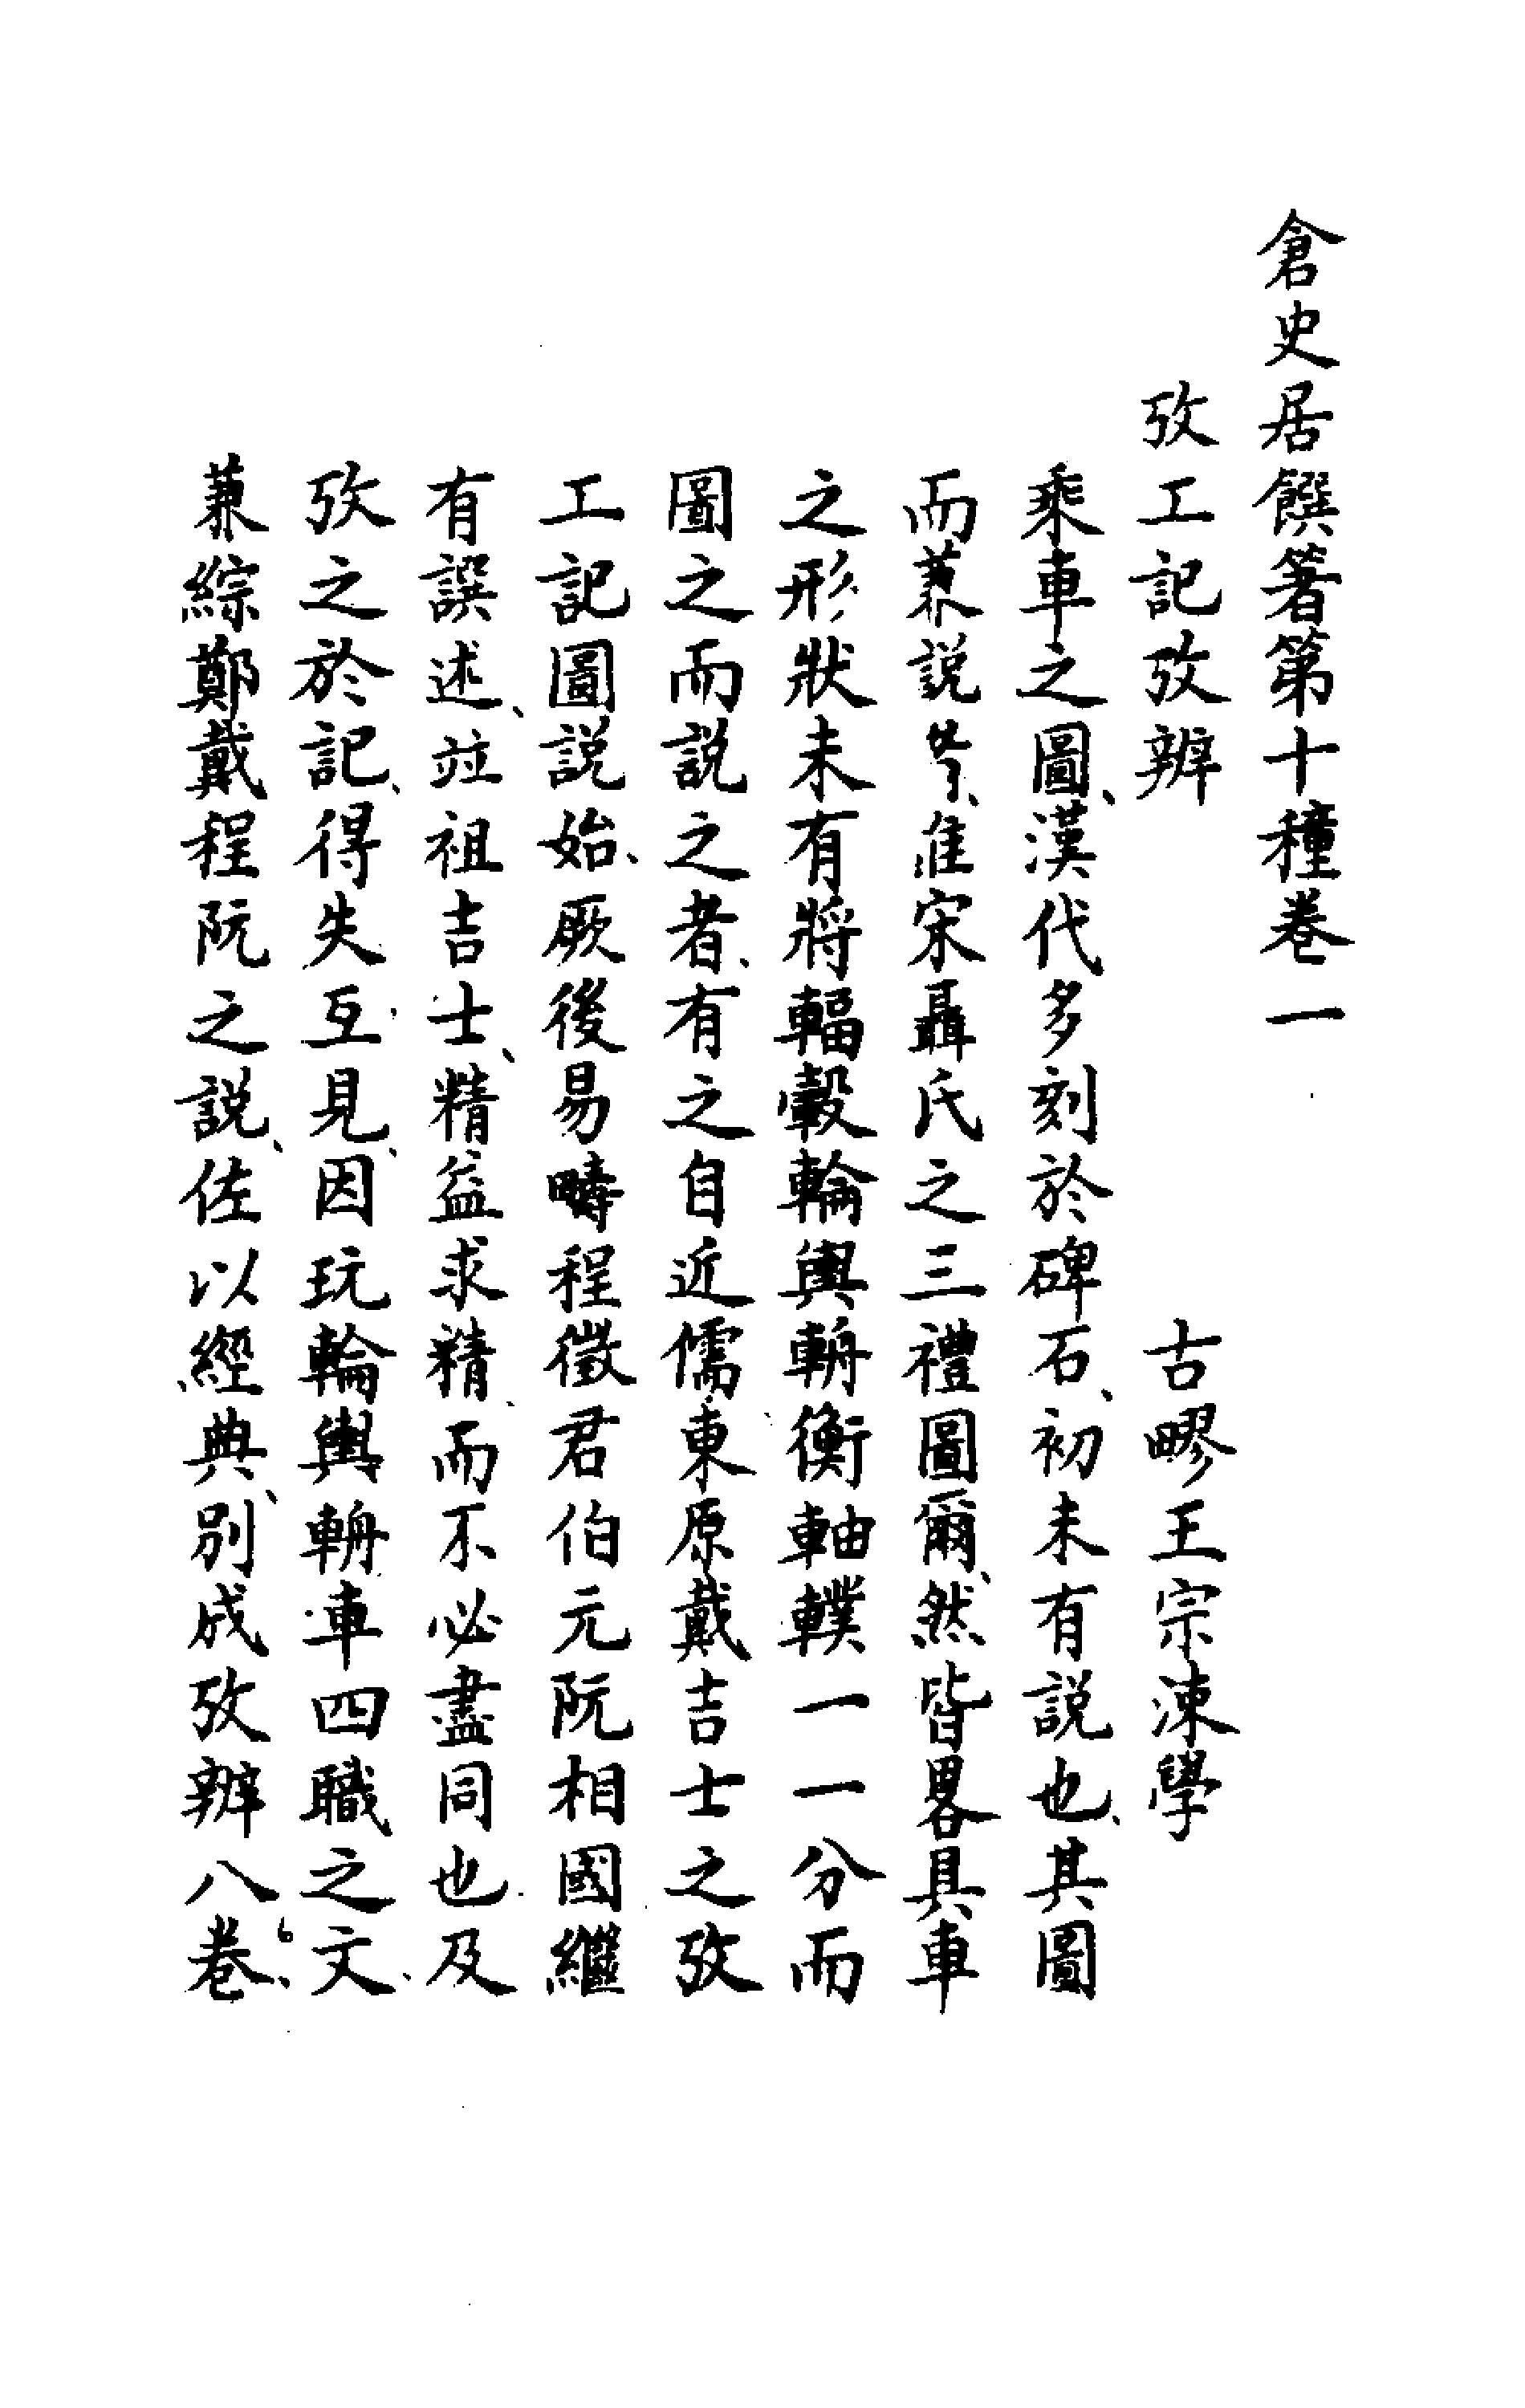 倉史居饌箸第十種卷一
攷工記攷辨 古疁王宗涑學
乘車之圖、漢代多刻於碑石、初未有説也、其圖
而兼説、隹宋聶氏之三禮圖爾、然皆畧具車
之形狀未有將輻轂輪輿輈衡軸轐一一分而
圖之而説之者、有之自近儒東原戴吉士之攷
工記圖説始、厥後易疇程徵君伯元阮相國繼
有譔述、竝祖吉士、精益求精、而不必盡同也及
攷之於記、得失互見、因玩輪輿輈車四職之文、
兼綜鄭戴程阮之説、佐以經典、別成攷辨八卷、